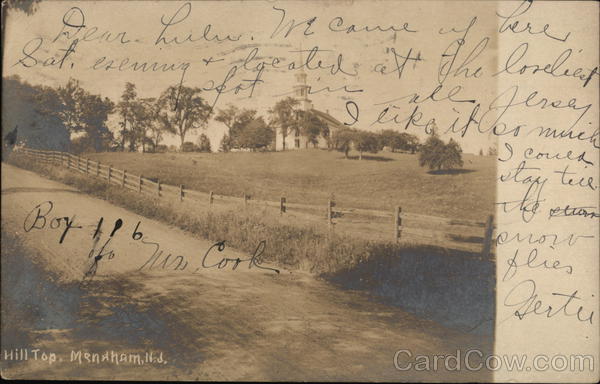 Dear Lulu. We came up here
Sat. evening & located at the loveliest
spot in all Jersey
I like it so much
I could
stay till
the
snow
flies
Gertie
Box 116
c/o Mrs. Cook
Hill Top. Mendham, N.J.
CardCow.com